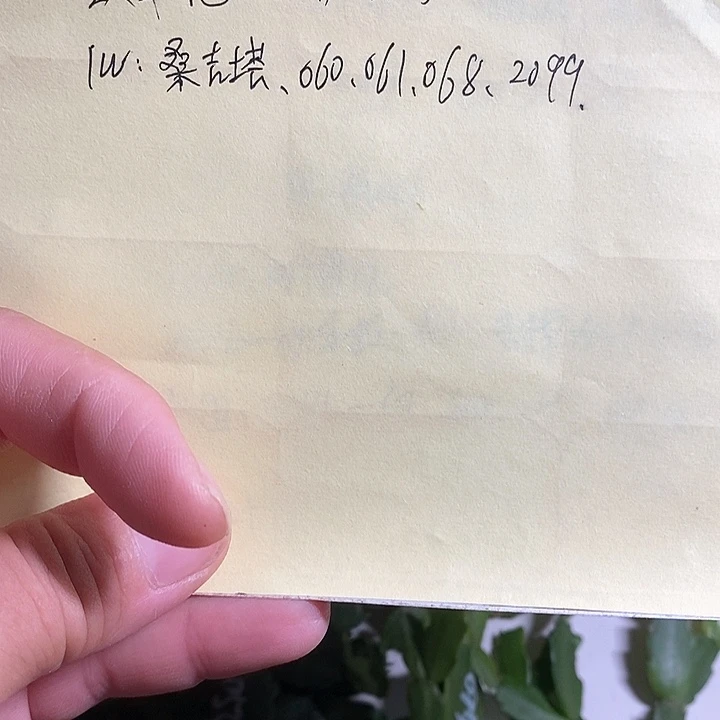 1W: 桑吉塔、060、061、068、2099.